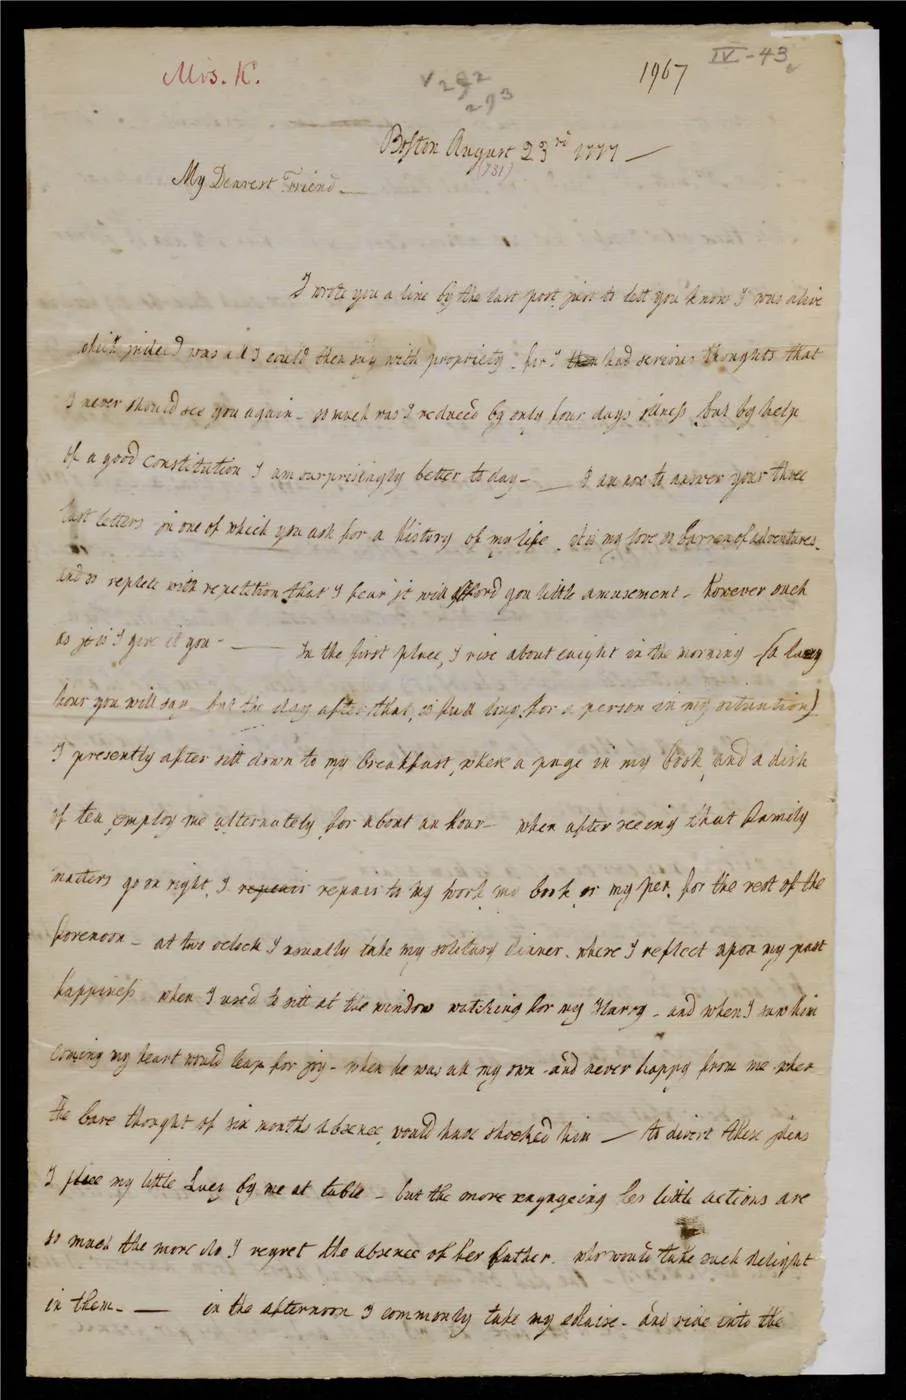 Mrs. K.
IV-43
1967
v 292
293
Boston August 23rd 1777 —
(781)
My Dearest Friend —
I wrote you a line by the last post just to let you know I was alive
which indeed was all I could then say with propriety. for I then had serious thoughts that
I never should see you again – so much was I reduced by only four days illness but by help
of a good constitution I am surprisingly better to day – — I am now to answer your three
last letters in one of which you ask for a history of my life. it is my love so barren of adventures.
and so replete with repetition that I fear it will afford you little amusement – However such
as it is I give it you – — In the first place, I rise about eaight in the morning – (a lazy
hour you will say – but the day after that, is full long for a person in my situation)
I presently after sitt down to my breakfast, where a page in my book, and a dish
of tea, employ me alternately for about an Hour – when after seeing that Family
matters go on right, I repair repair to my work, my book, or my pen, for the rest of the
forenoon – at two oclock I usually take my solitary dinner. where I reflect upon my past
happiness when I used to sitt at the window watching for my Harry – and when I saw him
coming my heart would leap for joy – when he was all my own – and never happy from me when
the bare thought of six months absence, would have shocked him – to divert these ideas
I place my little Lucy by me at table – but the more engageing her little actions are
so much the more do I regret the absence of her father. who would take such delight
in them – — in the afternoon I commonly take my chaise – and ride into the